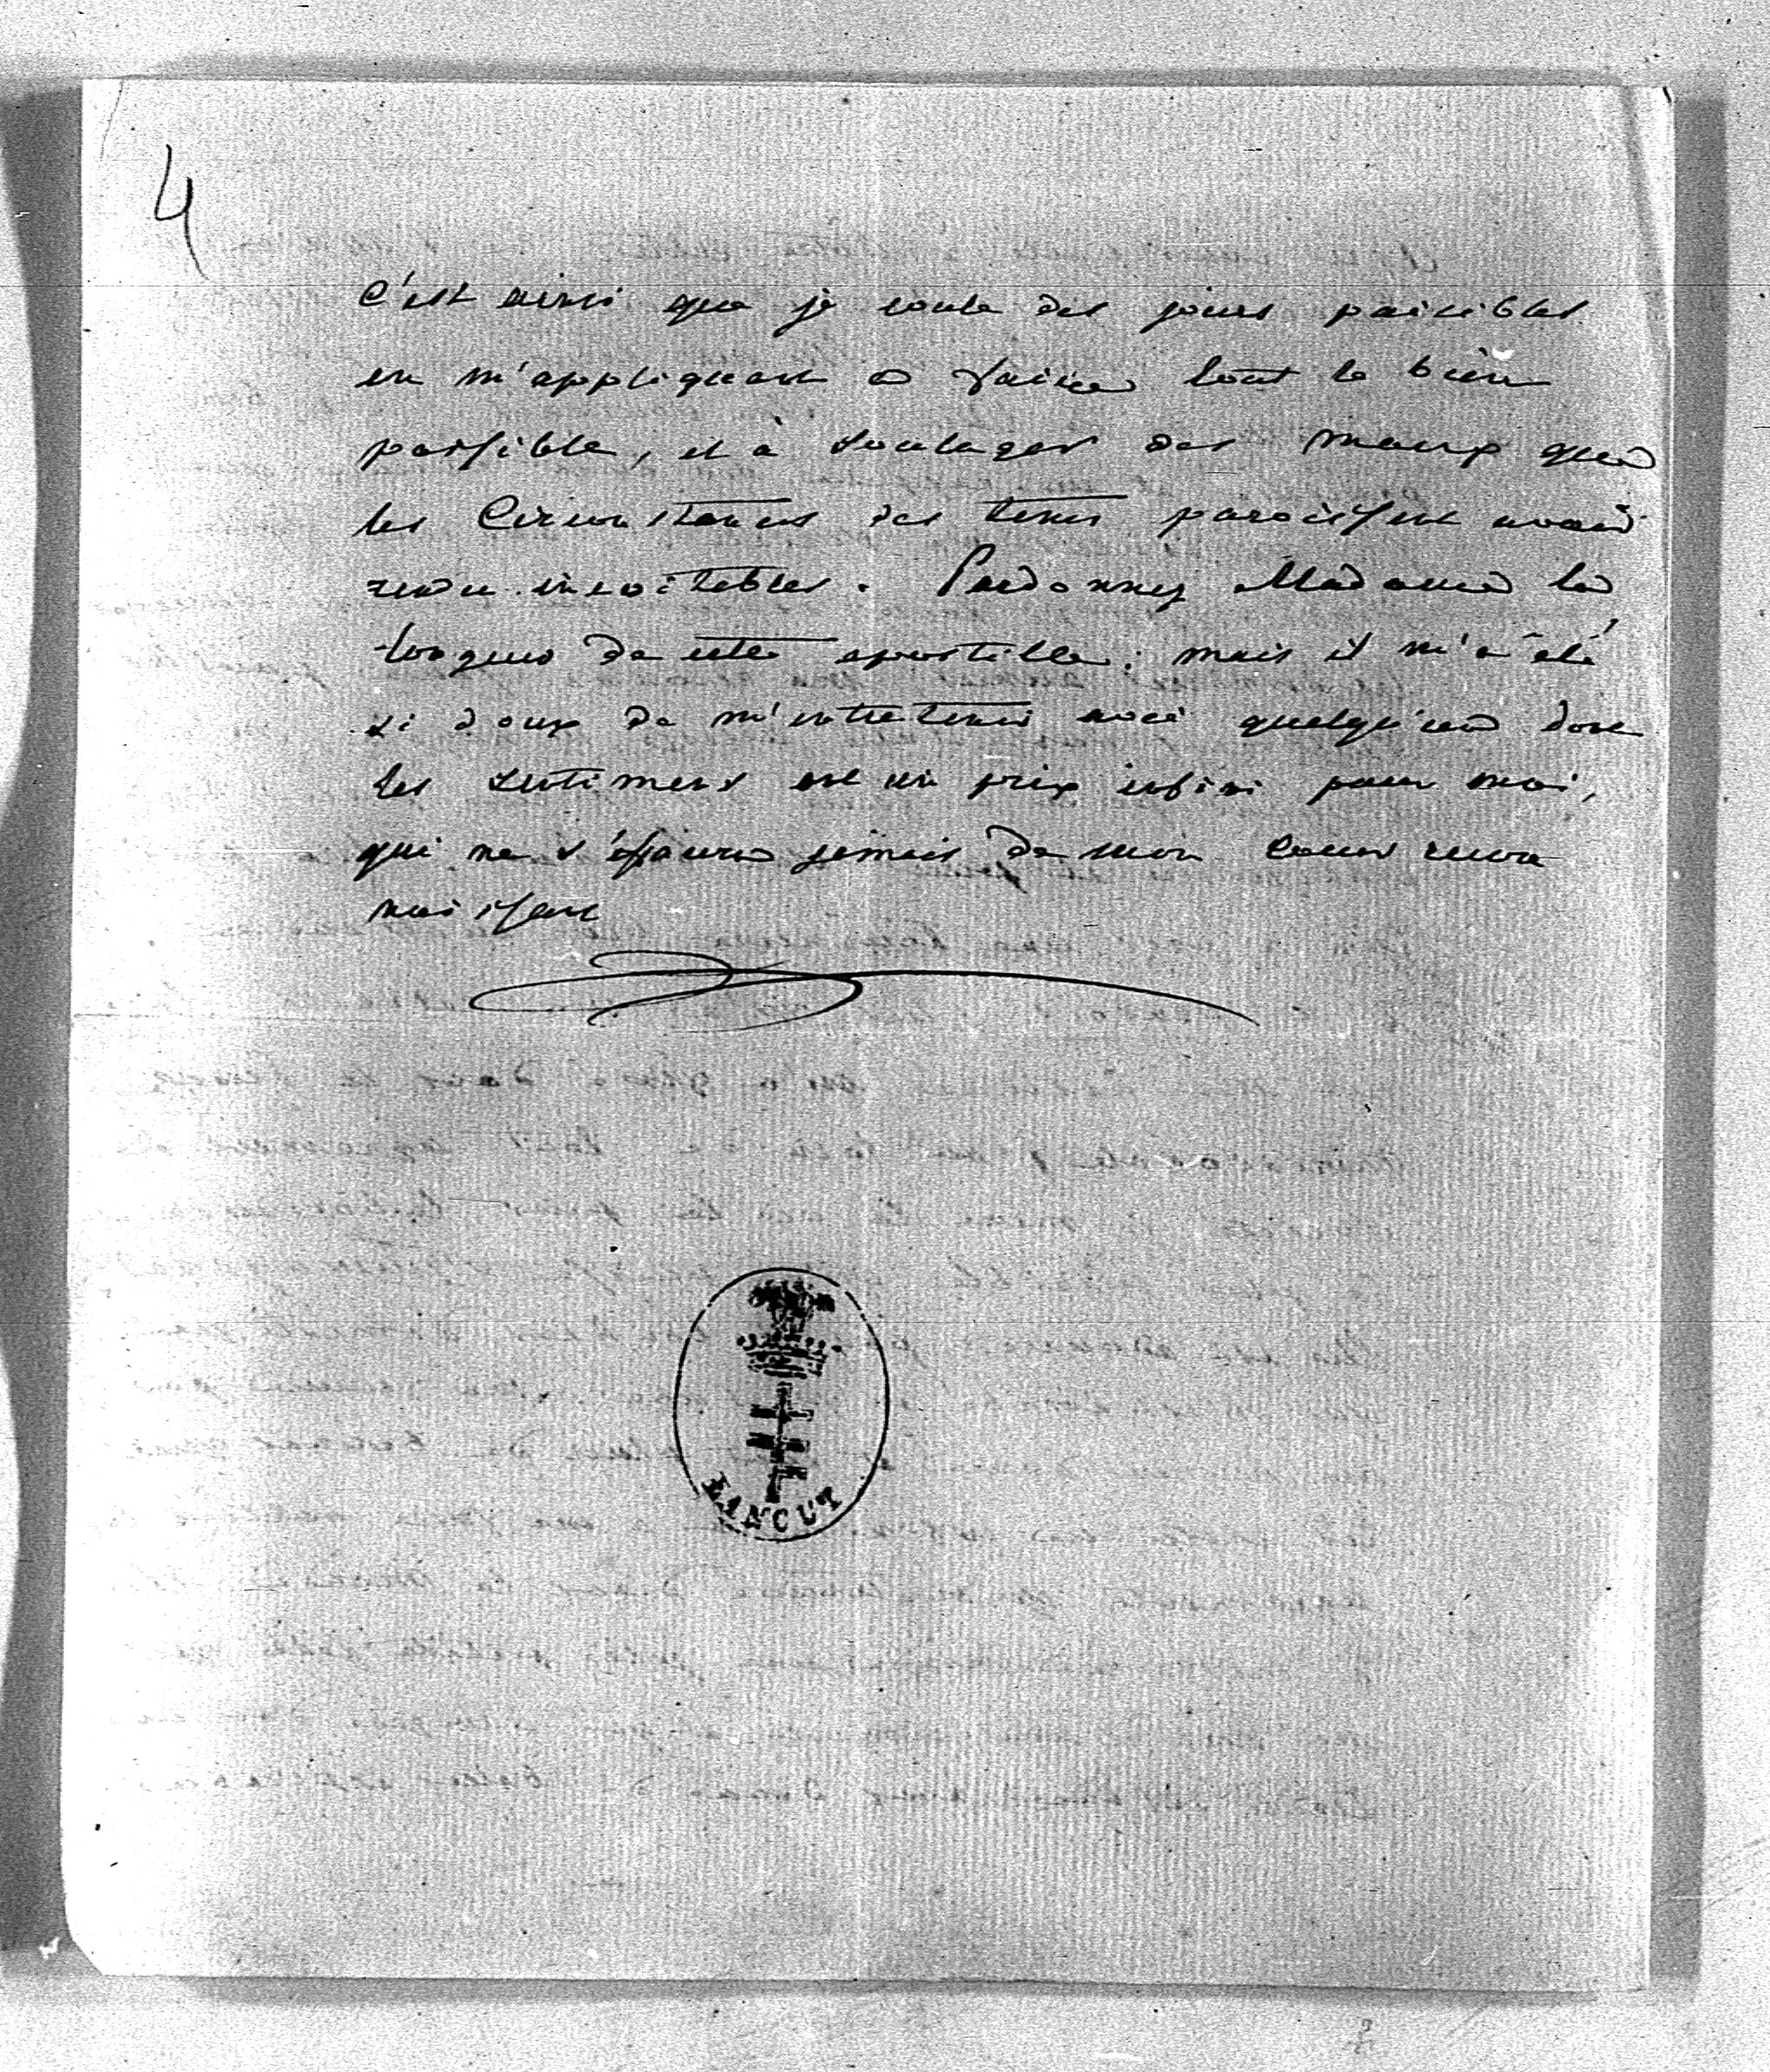 4
c'est ainsi que je coule des jours paisibles
en m'appliquant a faire tout le bien
possible, et à soulager des maux que
les Circonstances des tems paroissent avoir
rendu inevitables. Pardonnez Madame la
longueur de cette apostille; mais il m'a été
si doux de m'entretenir avec quelqu'un dont
les sentimens ont un prix infini pour moi,
qui ne s'effacera jamais de mon Coeur recon
noissant
ŁAŃCUT